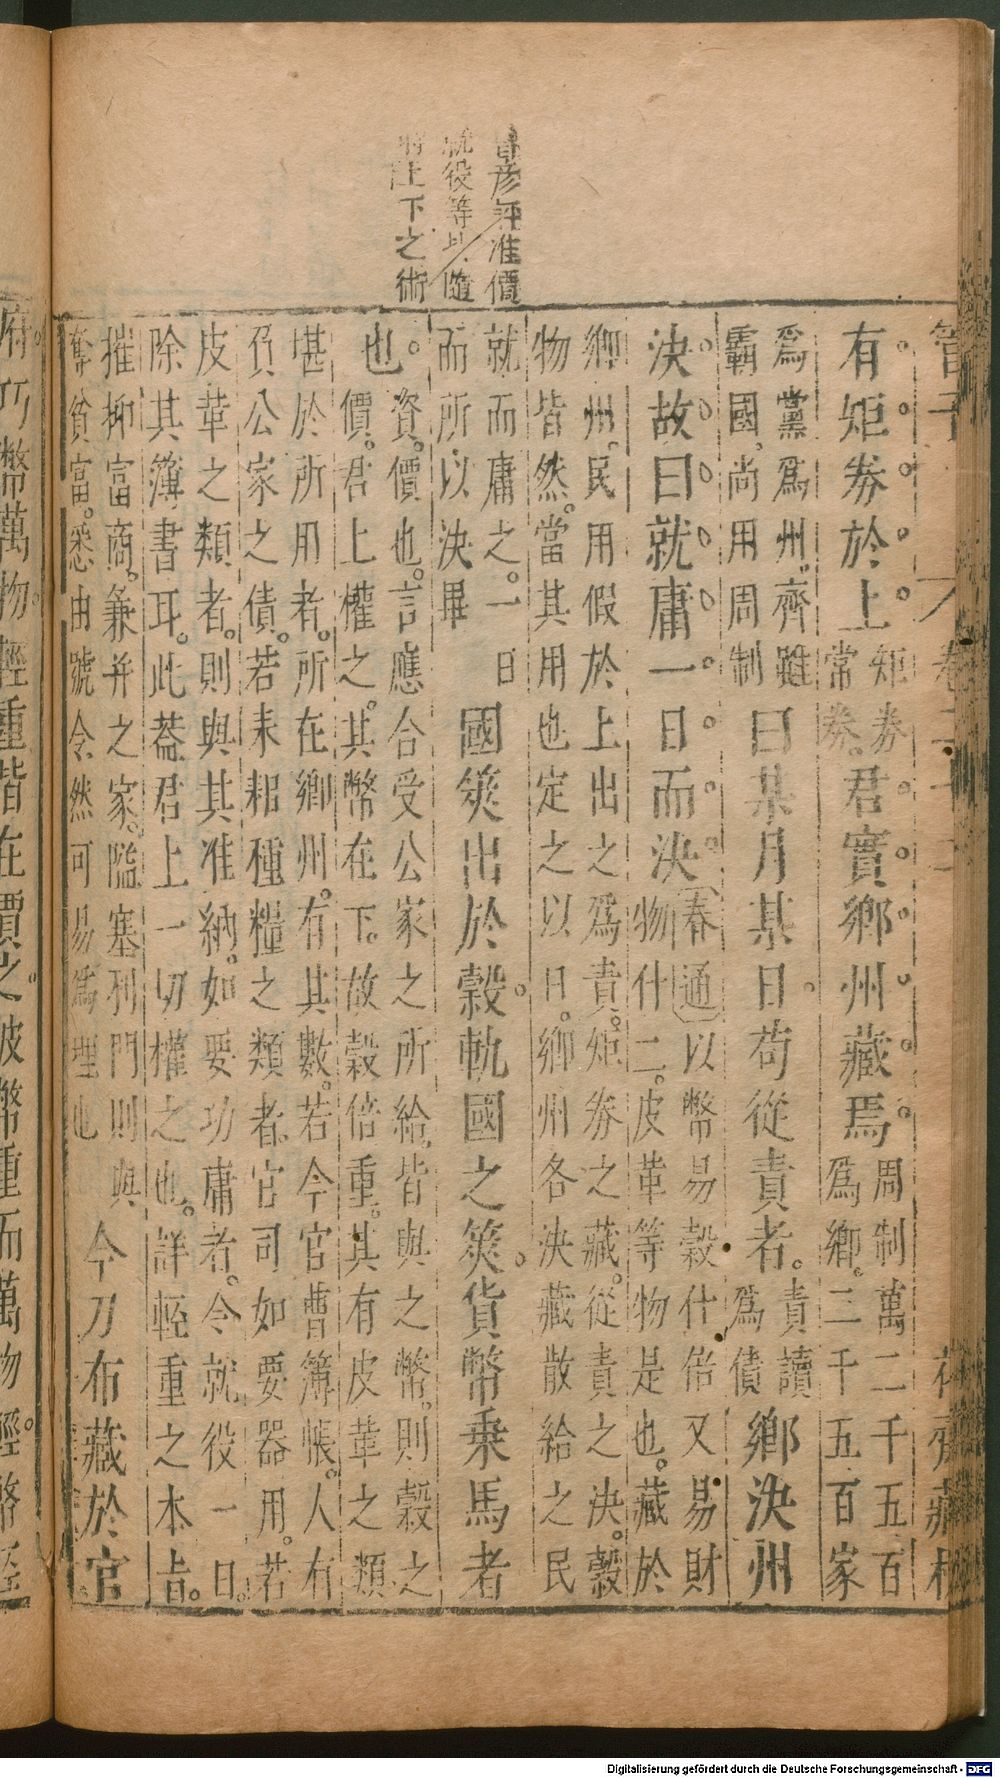 准價
就役等以隨
上下之術
管子
卷二十二
有矩券於上矩券常券君實鄉州藏焉周制萬二千五百家爲鄉二千五百家
爲黨爲州齊雖霸國尚用周制曰某月某日苟從責者責讀爲債鄉決州
決故曰就庸一日而決春通以幣易穀什倍又易財物什二皮革等物是也藏於
鄉州民用假於上出之爲責矩券之藏從責之決穀物皆然當其用也定之以日鄉州各決藏散給之民
就而庸之一日而所以決畢國筴出於穀軌國之筴貨幣乘馬者
也資價也言應合受公家之所給皆與之幣則穀之價君上權之其幣在下故穀倍重其有皮革之類
堪於所用者所在鄉州有其數若今官曹簿帳人有負公家之債若耒耜種糧之類者官司如要器用若
皮革之類者則與其准納如要功庸者令就役一日除其簿書耳此蓋君上一切權之也詳輕重之本旨
摧抑富商兼并之家隘塞利門則與奪貧富悉由號令然可易爲理也今刀布藏於官
府巧幣萬物輕重皆在賈之彼幣重而萬物輕幣輕
Digitalisierung gefördert durch die Deutsche Forschungsgemeinschaft - DFG